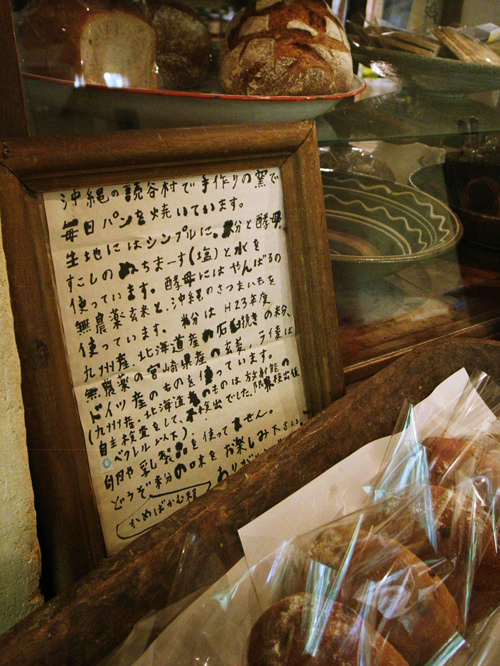 沖縄の読谷村で手作りの窯で
毎日パンを焼いています。
生地にはシンプルに。粉と酵母
すこしのぬちまーす(塩)と水を
使っています。酵母にはやんばるの
無農薬玄米と、沖縄のさつまいもを
使っています。 粉は H23年度
九州産、北海道産の石臼挽きの粉、
無農薬の宮崎県産の玄麦、ライ麦は
ドイツ産のものを使っています。
(九州産、北海道産のものは放射能の
自主検査をして、不検出でした。限界検出値
ベクレル以下)
卵や乳製品を使ってません。
どうぞ粉の味をお楽しみ下さい。
ありが
かめばかむ程